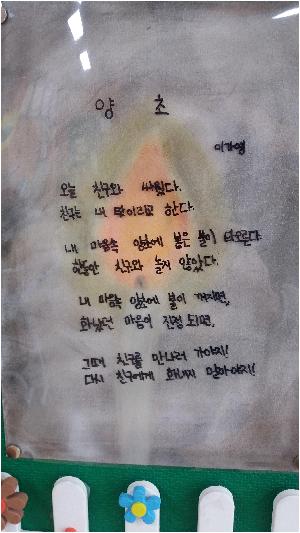 양 초
이가영
오늘 친구와 싸웠다.
친구는 내 탓이라고 한다.
내 마음속 양초에 붙은 불이 타오른다
한동안 친구와 놀지 않았다.
내 마음속 양초에 불이 꺼지면,
화났던 마음이 진정 되면,
그때 친구를 만나러 가야지!
다시 친구에게 화내지 말아야지!